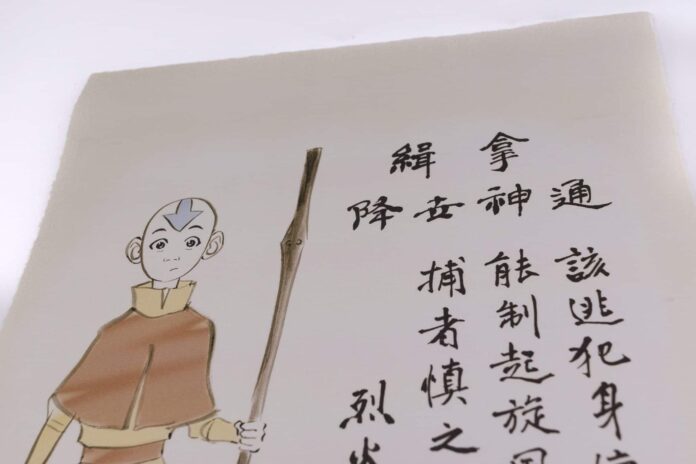 緝拿
降世神通
該逃犯身
能制起旋
捕者慎之
烈